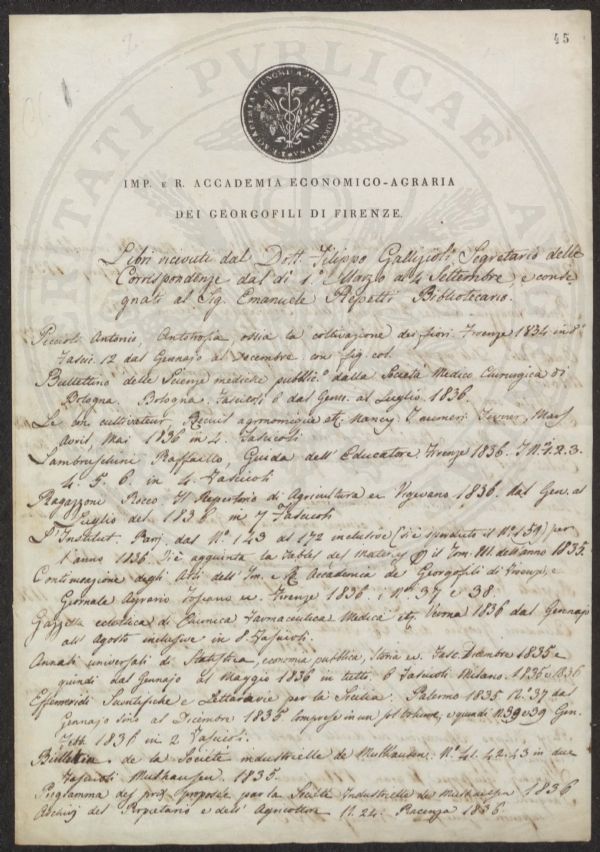 45
IMP. E R. ACCADEMIA ECONOMICO-AGRARIA
DEI GEORGOFILI DI FIRENZE.
Libri ricevuti dal Dott. Filippo Gallizioli Segretario delle
Corrispondenze dal dì 1.° Marzo al 4 Settembre, e conse
gnati al Sig. Emanuele Repetti Bibliotecario.
Piccioli Antonio, Antotrofia, ossia la coltivazione dei fiori. Firenze 1834 in 8.°
Fascic. 12 dal Gennajo al Decembre con fig. col.
Bullettino delle Scienze mediche pubblic.° dalla Società Medico Chirurgica di
Bologna. Bologna Fascicoli 6 dal Genn. al Luglio 1836.
Le bon cultivateur, Recueil agronomique etc. Nancy Janvier, Fevrier, Mars
Avril, Mai 1836 in 4. Fascicoli
Lambruschini Raffaello, Guida dell'Educatore Firenze 1836. I N.i 1. 2. 3.
4. 5. 6. in 4. Fascicoli
Ragazzoni Rocco Il Repertorio di Agricoltura ec Vigevano 1836. dal Gen. al
Luglio del 1836 in 7 Fascicoli
L'Institut. Parij dal N.° 143 al 172 inclusive (si è sperduto il N.° 159) per
l'anno 1836. Si è aggiunta la tables des mater. il Tom. III. dell'anno 1835.
Continuazione degli Atti dell'Im. e R. Accademia de Georgofili di Firenze, e
Giornale Agrario Toscano ec. Firenze 1836 i N.i 37 e 38.
Gazzetta eclettica di Chimica Farmaceutica Medica etc. Verona 1836 dal Gennajo
all'Agosto inclusive in 8 Fascicoli.
Annali universali di Statistica, economia pubblica, storia ec. Fasc. Dicembre 1835 e
quindi dal Gennajo al Maggio 1836 in tutto 6 Fascicoli Milano. 1835 e 1836
Effemeridi Scientifiche e Letterarie per la Sicilia. Palermo 1835 N.° 37 dal
Gennajo sino al Decembre 1835 compreso in un sol Volume, e quindi N. 38 e 39 Gen.
Febb. 1836 in 2 Fascicoli.
Bulletin de la Société industrielle de Mulhausen. N.° 41. 42. 43 in due
Fascicoli Mulhausen 1835.
Programma des prix proposés par la Société Industrielle de Mulhausen 1836
del Proprietario e dell'Agricoltore N. 24. Piacenza 1836